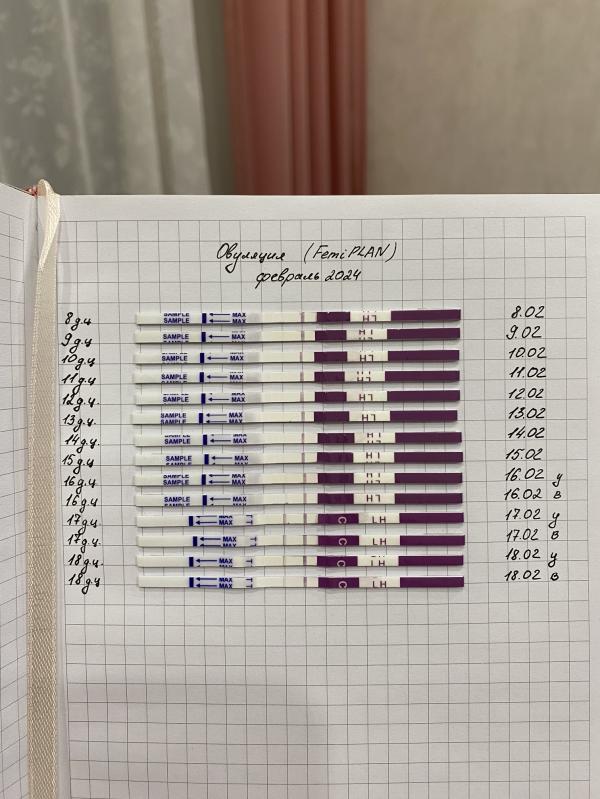 Овуляция (FemiPLAN)
февраль 2024
8 д.ц. SAMPLE SAMPLE MAX LH 8.02
9 д.ц. SAMPLE MAX LH 9.02
10 д.ц. SAMPLE MAX LH 10.02
11 д.ц. SAMPLE MAX LH 11.02
12 д.ц. SAMPLE MAX LH 12.02
13 д.ц. SAMPLE MAX LH 13.02
14 д.ц. SAMPLE MAX LH 14.02
15 д.ц. SAMPLE MAX LH 15.02
16 д.ц. SAMPLE MAX LH 16.02 у
16 д.ц. SAMPLE MAX LH 16.02 в
17 д.ц. MAX MAX T C LH 17.02 у
17 д.ц. MAX MAX T C LH 17.02 в
18 д.ц. MAX MAX T C LH 18.02 у
18 д.ц. MAX MAX T C LH 18.02 в